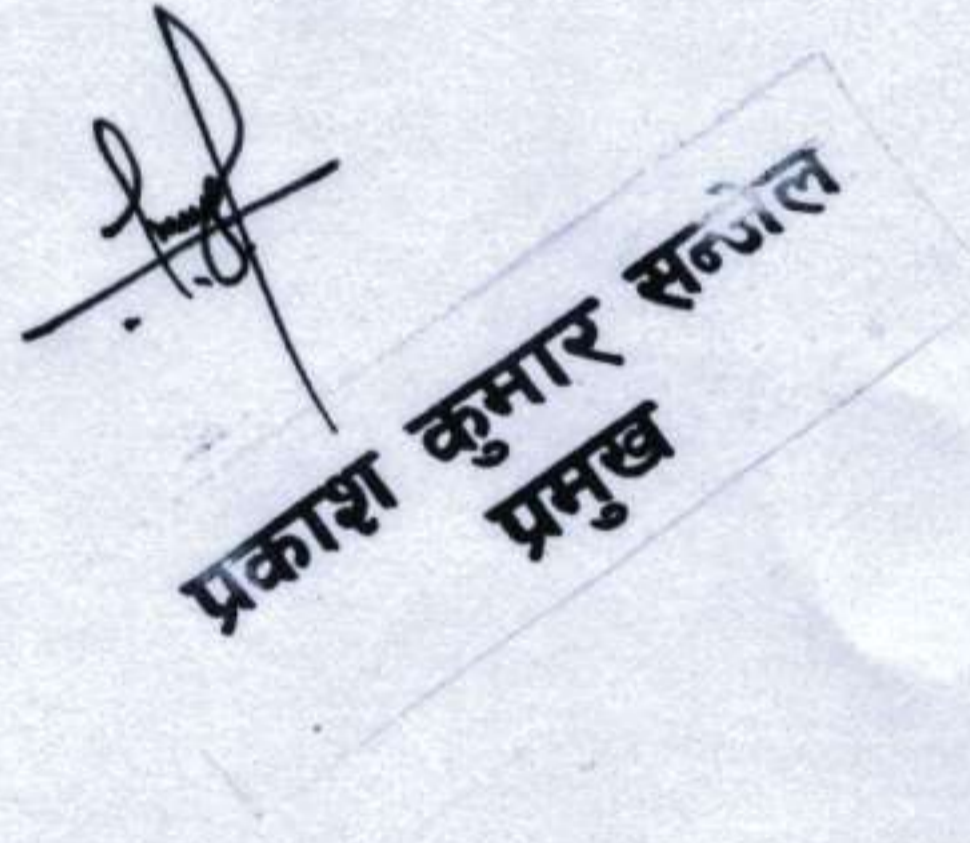 प्रकाश कुमार सन्जेल
प्रमुख